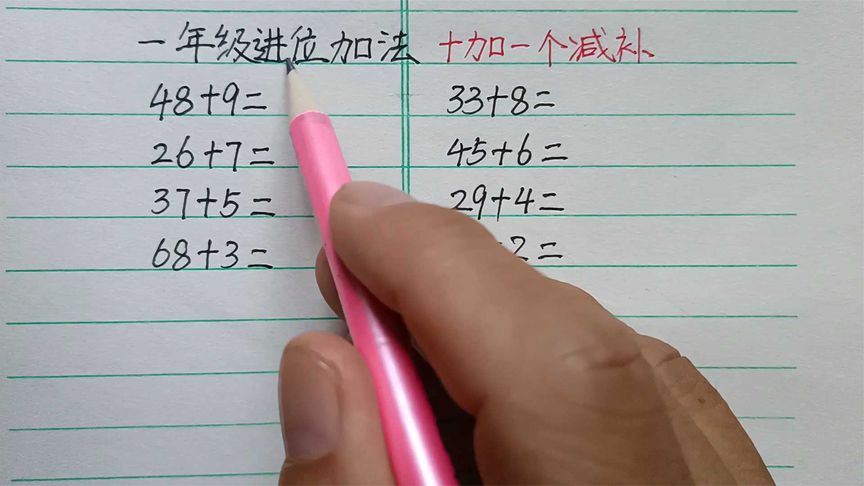 一年级进位加法 十加一个减补
48+9= 33+8=
26+7= 45+6=
37+5= 29+4=
68+3= +2=